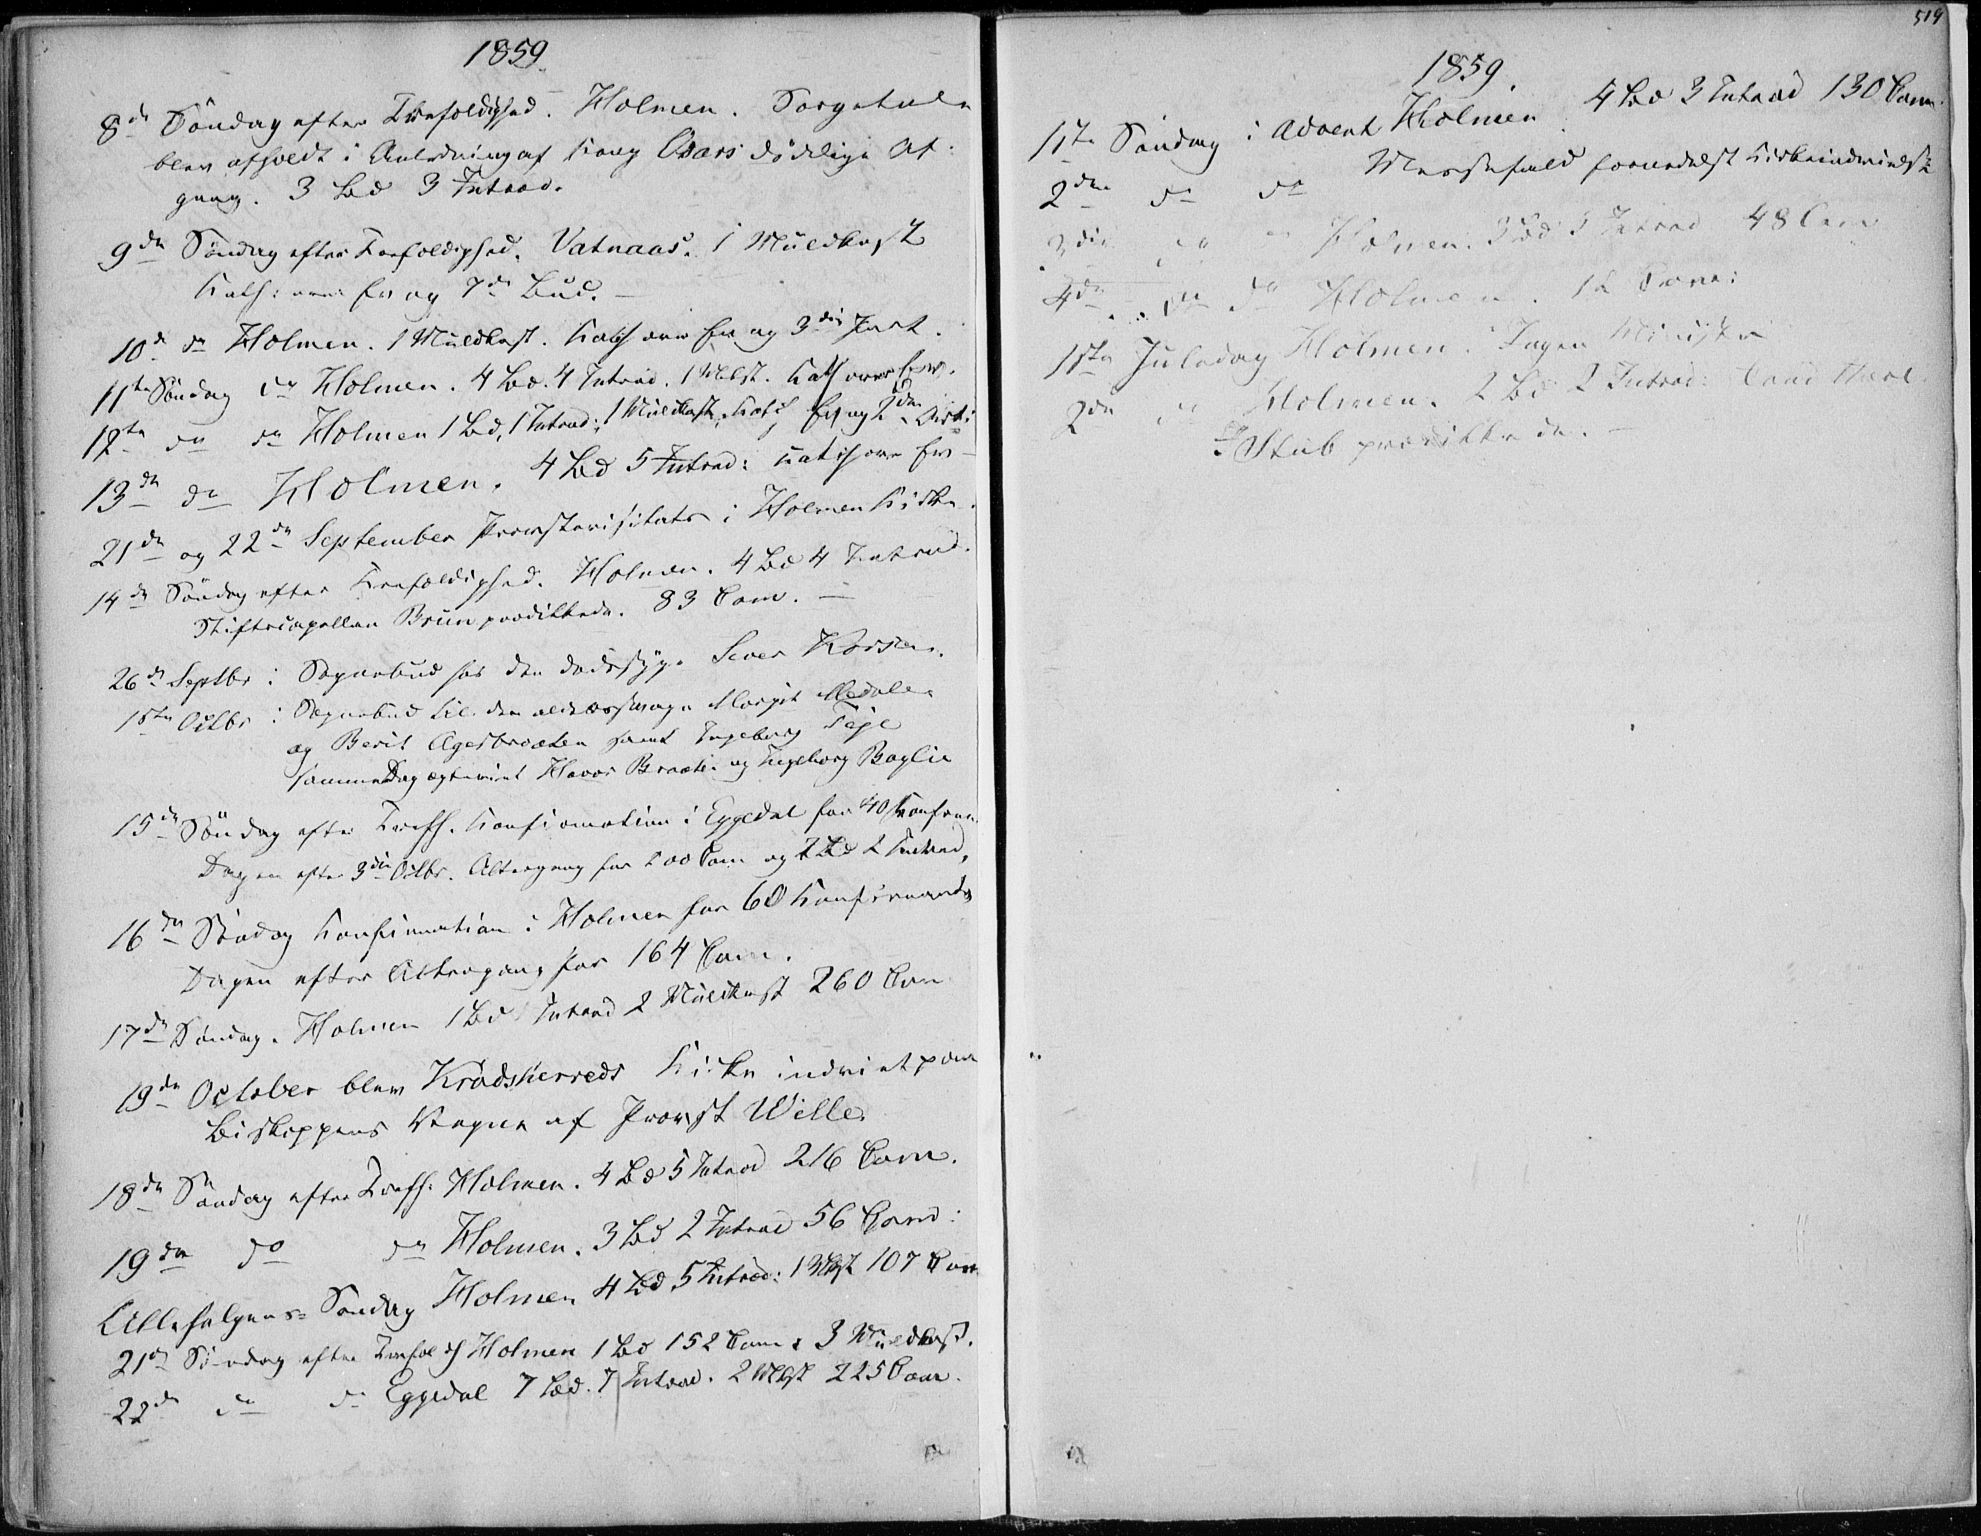 1859.
8de Söndag efter Trefoldighed. Holmen. Sørgetale
blev afholdt i Anledning af Kong Oscars dödelige Af-
gang. 3 Bd 3 Introd.
9de Söndag efter Trefoldighed. Vatnaas. 1 Muldkast
Kath: over Ev og 7de Bud. —
10de do Holmen. 1 Muldkast. Kath over Ev og 3die Part.
11te Söndag do Holmen. 4 Bd. 4 Introd. 1 Mkst. Kath over Ev.
12te do do Holmen 1 Bd, 1 Introd:, 1 Muldkast, Kath Ev og 2den Arti:
13de do Holmen. 4 Bd 5 Introd: Kath over Ev —
21de og 22de September Provstevisitats i Holmen Kirke.
14de Söndag efter Trefoldighed. Holmen. 4 Bd 4 Introd.
Stiftscapellan Bruun prædikede. 83 Com. —
26de Septbr: Sognebud hos den dødssyge Siver Korsen.
1ste Octbr: Sognebud til den alderssvage Margit Medalen
og Berit Agerbraaten samt Ingeborg Teje
samme Dag ægteviet Haavor Braaten og Ingeborg Baglie
15de Söndag efter Trefh. Konfirmation i Eggedal for 40 Konfirm.
Dagen efter 3die Octbr. Altergang for 200 Com og 2 Bd 2 Introd,
16de Söndag Konfirmation i Holmen for 60 Konfirmander
Dagen efter Altergang for 164 Com.
17de Söndag. Holmen 1 Bd 1 Introd 2 Muldkast 260 Com
19de October blev Krödsherreds Kirke indviet paa
Biskoppens Vegne af Provst Wille.
18de Söndag efter Trefh: Holmen. 4 Bd 5 Introd 216 Com.
19de do do Holmen. 3 Bd 2 Introd 56 Com:
Allehelgens= Söndag Holmen 4 Bd 5 Introd: 1 Mkst 107 Com
21de Söndag efter Trefoldh Holmen 1 Bd 152 Com: 3 Muldkast.
22de do do Eggedal 7 Bd. 7 Introd. 2 Mkst 225 Com.
519
1859.
1ste Söndag i Advent Holmen 4 Bd 3 Introd 130 Com.
2den do do Messefald formedelst Kirkeindvielse
3die do do Holmen. 3 Bd 3 Introd 48 Com
4de do do Holmen. 12 Com:
1ste Juledag Holmen. Ingen Minister
2den do Holmen. 2 Bd 2 Introd: Cand theol.
Stub prædikede. —